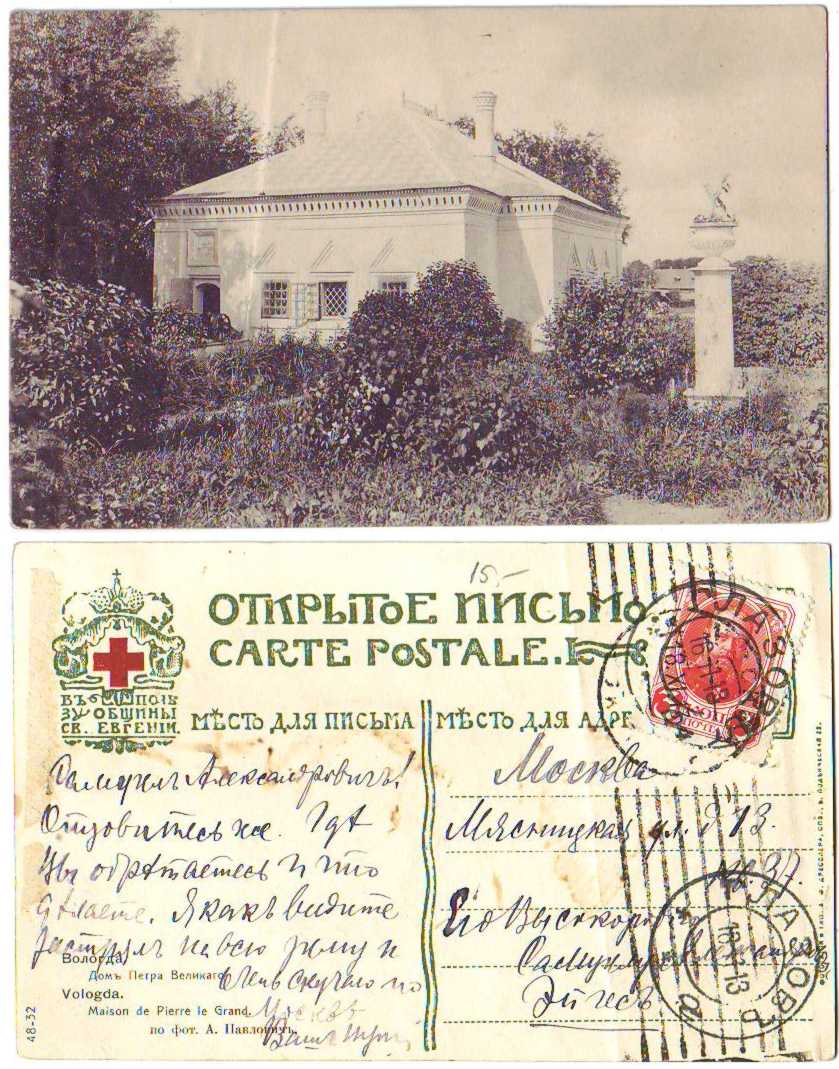 15.-
ОТКРЫТОЕ ПИСЬМО
CARTE POSTALE.
ВЪ ПОЛЬ
ЗУ ОБЩИНЫ
СВ. ЕВГЕНІИ.
МѢСТО ДЛЯ ПИСЬМА
МѢСТО ДЛЯ АДРЕ
Самуилъ Александровичъ!
Отзовитесь же. Гдѣ
Вы обрѣтаетесь и что
дѣлаете. Я какъ видите
на всю зиму и
очень скучаю по
Москвѣ
Вашъ
Вологда.
Домъ Петра Великаго.
Vologda.
Maison de Pierre le Grand.
по фот. А. Павловичъ.
48-32
Москва
Мясницкая ул. д 13.
кв. 37.
Его Высокородію
Самуилу Александр
Эйгесъ
ГЛАЗОВЪ
ГЛАЗОВЪ
13